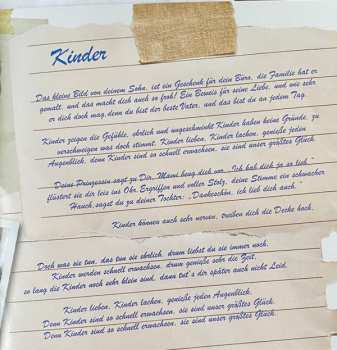 Kinder
Das kleine Bild von deinem Sohn, ist ein Geschenk für dein Büro, die Familie hat er
gemalt, und das macht dich auch so froh! Ein Beweis für seine Liebe, und wie sehr
er dich doch mag, denn du bist der beste Vater, und das bist du an jedem Tag.
Kinder zeigen die Gefühle, ehrlich und ungeschminkt Kinder haben keine Gründe, zu
verschweigen was doch stimmt. Kinder lieben, Kinder lachen, genieße jeden
Augenblick, denn Kinder sind so schnell erwachsen, sie sind unser größtes Glück.
Deine Prinzessin sagt zu Dir, Mami beug dich vor, „Ich hab dich ja so lieb“
flüstert sie dir leis ins Ohr. Ergriffen und voller Stolz, deine Stimme ein schwacher
Hauch, sagst du zu deiner Tochter: „Dankeschön, ich lieb dich auch.“
Kinder können auch sehr nerven, treiben dich die Decke hoch,
Doch was sie tun, das tun sie ehrlich, drum liebst du sie immer noch.
Kinder werden schnell erwachsen, drum genieße sehr die Zeit,
so lang die Kinder noch sehr klein sind, dann tut's dir später auch nicht Leid.
Kinder lieben, Kinder lachen, genieße jeden Augenblick.
Denn Kinder sind so schnell erwachsen, sie sind unser größtes Glück.
Denn Kinder sind so schnell erwachsen, sie sind unser größtes Glück.